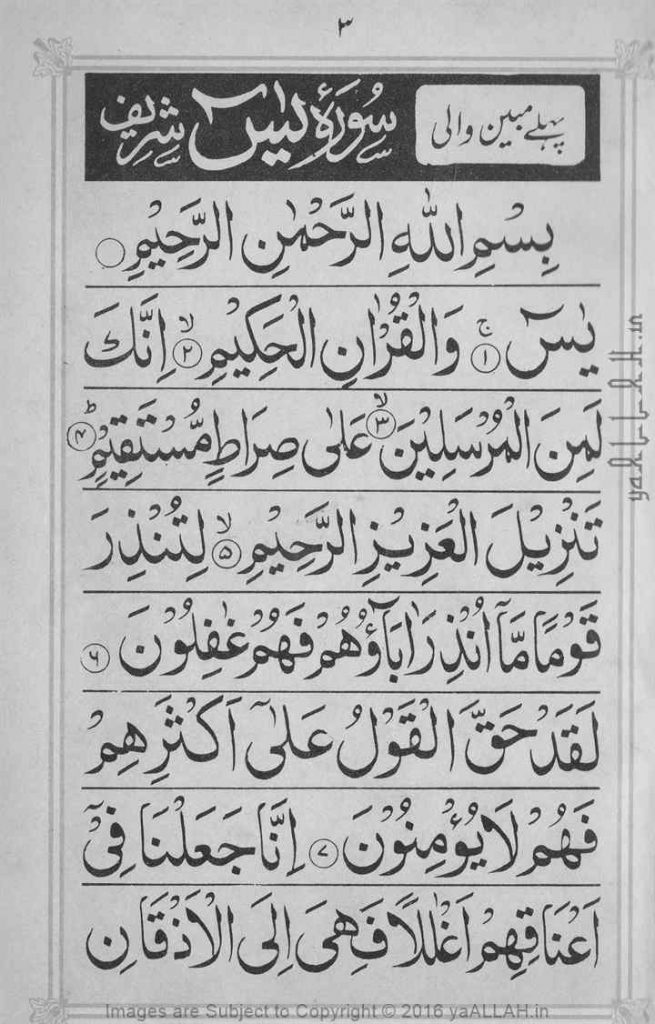 ۳
سُورَۂ يٰسٓ شریف پہلے مبین والی
بِسْمِ اللهِ الرَّحْمٰنِ الرَّحِيْمِ
يٰسٓ ۚ ﴿۱﴾ وَالْقُرْاٰنِ الْحَكِيْمِ ۙ ﴿۲﴾ اِنَّكَ
لَمِنَ الْمُرْسَلِيْنَ ۙ ﴿۳﴾ عَلٰى صِرَاطٍ مُّسْتَقِيْمٍ ؕ ﴿۴﴾
تَنْزِيْلَ الْعَزِيْزِ الرَّحِيْمِ ۙ ﴿۵﴾ لِتُنْذِرَ
قَوْمًا مَّاۤ اُنْذِرَ اٰبَآؤُهُمْ فَهُمْ غٰفِلُوْنَ ﴿۶﴾
لَقَدْ حَقَّ الْقَوْلُ عَلٰۤى اَكْثَرِهِمْ
فَهُمْ لَا يُؤْمِنُوْنَ ﴿۷﴾ اِنَّا جَعَلْنَا فِيْۤ
اَعْنَاقِهِمْ اَغْلٰلًا فَهِىَ اِلَى الْاَذْقَانِ
yaALLAH.in
Images are Subject to Copyright © 2016 yaALLAH.in